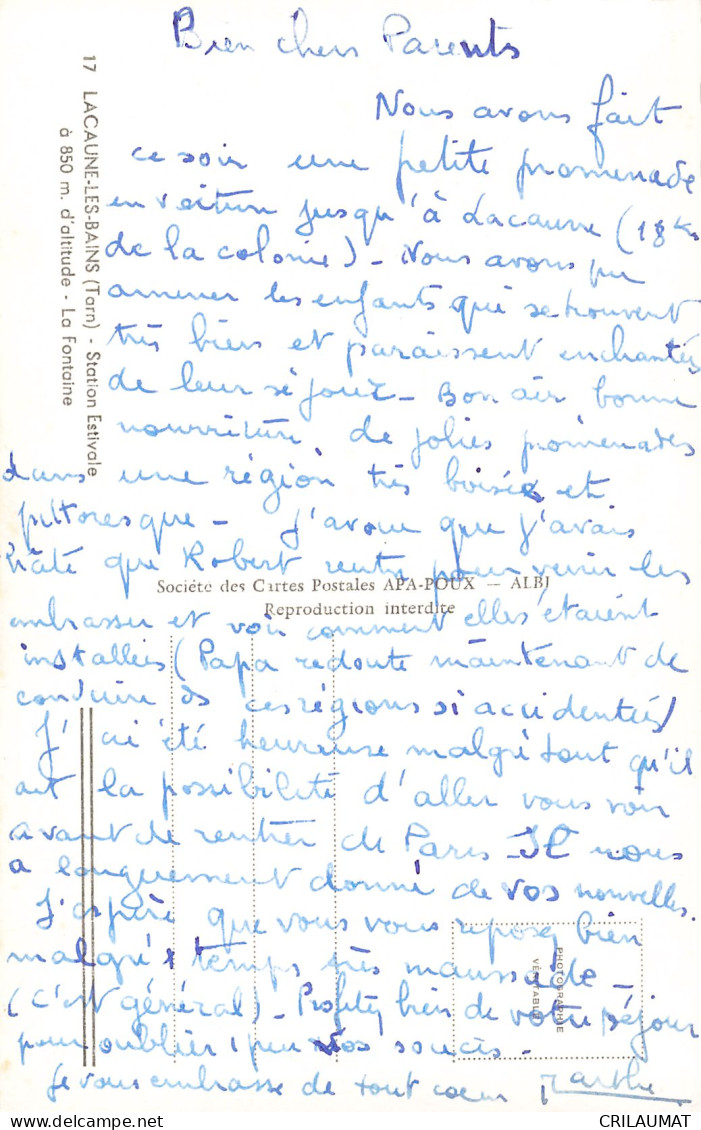 Bien chers Parents
Nous avons fait
ce soir une petite promenade
en voiture jusqu'à Lacaune (18 Km
de la colonie) - Nous avons pu
amener les enfants qui se trouvent
très bien et paraissent enchantés
de leur séjour - Bon air bonne
nourriture, de jolies promenades
dans une région très boisée et
pittoresque - J'avoue que j'avais
hâte que Robert rentre pour venir les
embrasser et voir comment elles étaient
installées (Papa redoute maintenant de
conduire ds ces régions si accidentées)
J'ai été heureuse malgré tout qu'il
ait la possibilité d'aller vous voir
avant de rentrer de Paris - Il nous
a longuement donné de vos nouvelles.
J'espère que vous vous reposez bien
malgré temps très maussade -
(C'est général) - Profitez bien de votre séjour
pour oublier 1 peu vos soucis -
Je vous embrasse de tout coeur Marthe
17 LACAUNE-LES-BAINS (Tarn) - Station Estivale
à 850 m. d'altitude - La Fontaine
Société des Cartes Postales APA-POUX — ALBI
Reproduction interdite
PHOTOGRAPHIE
VÉRITABLE
CRILAUMAT